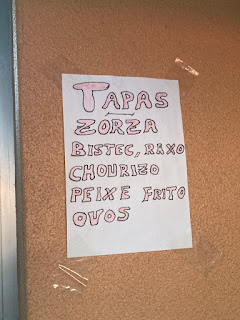 TAPAS
ZORZA
BISTEC, RAXO
CHOURIZO
PEIXE FRITO
OVOS